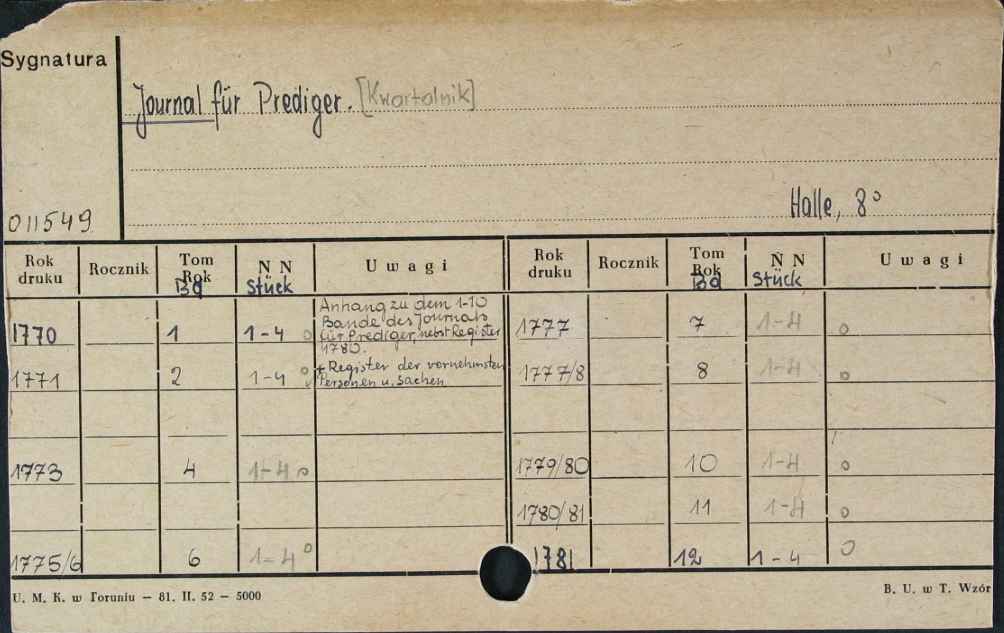 Sygnatura
Journal für Prediger. [Kwartalnik]
Halle, 8°
011549
Rok druku Rocznik Tom Rok Bd N N Stück Uwagi Rok druku Rocznik Tom Rok Bd N N Stück Uwagi
1770 1 1-4 o Anhang zu dem 1-10 Bande des Journals für Prediger, nebst Register 1780. 1777 7 1-4 o
1771 2 1-4 o + Register der vornehmsten Personen u. Sachen 1777/8 8 1-4 o
1773 4 1-4 o 1779/80 10 1-4 o
1780/81 11 1-4 o
1775/6 6 1-4 o 1781 12 1-4 o
U. M. K. w Toruniu – 81. II. 52 – 5000
B. U. w T. Wzór